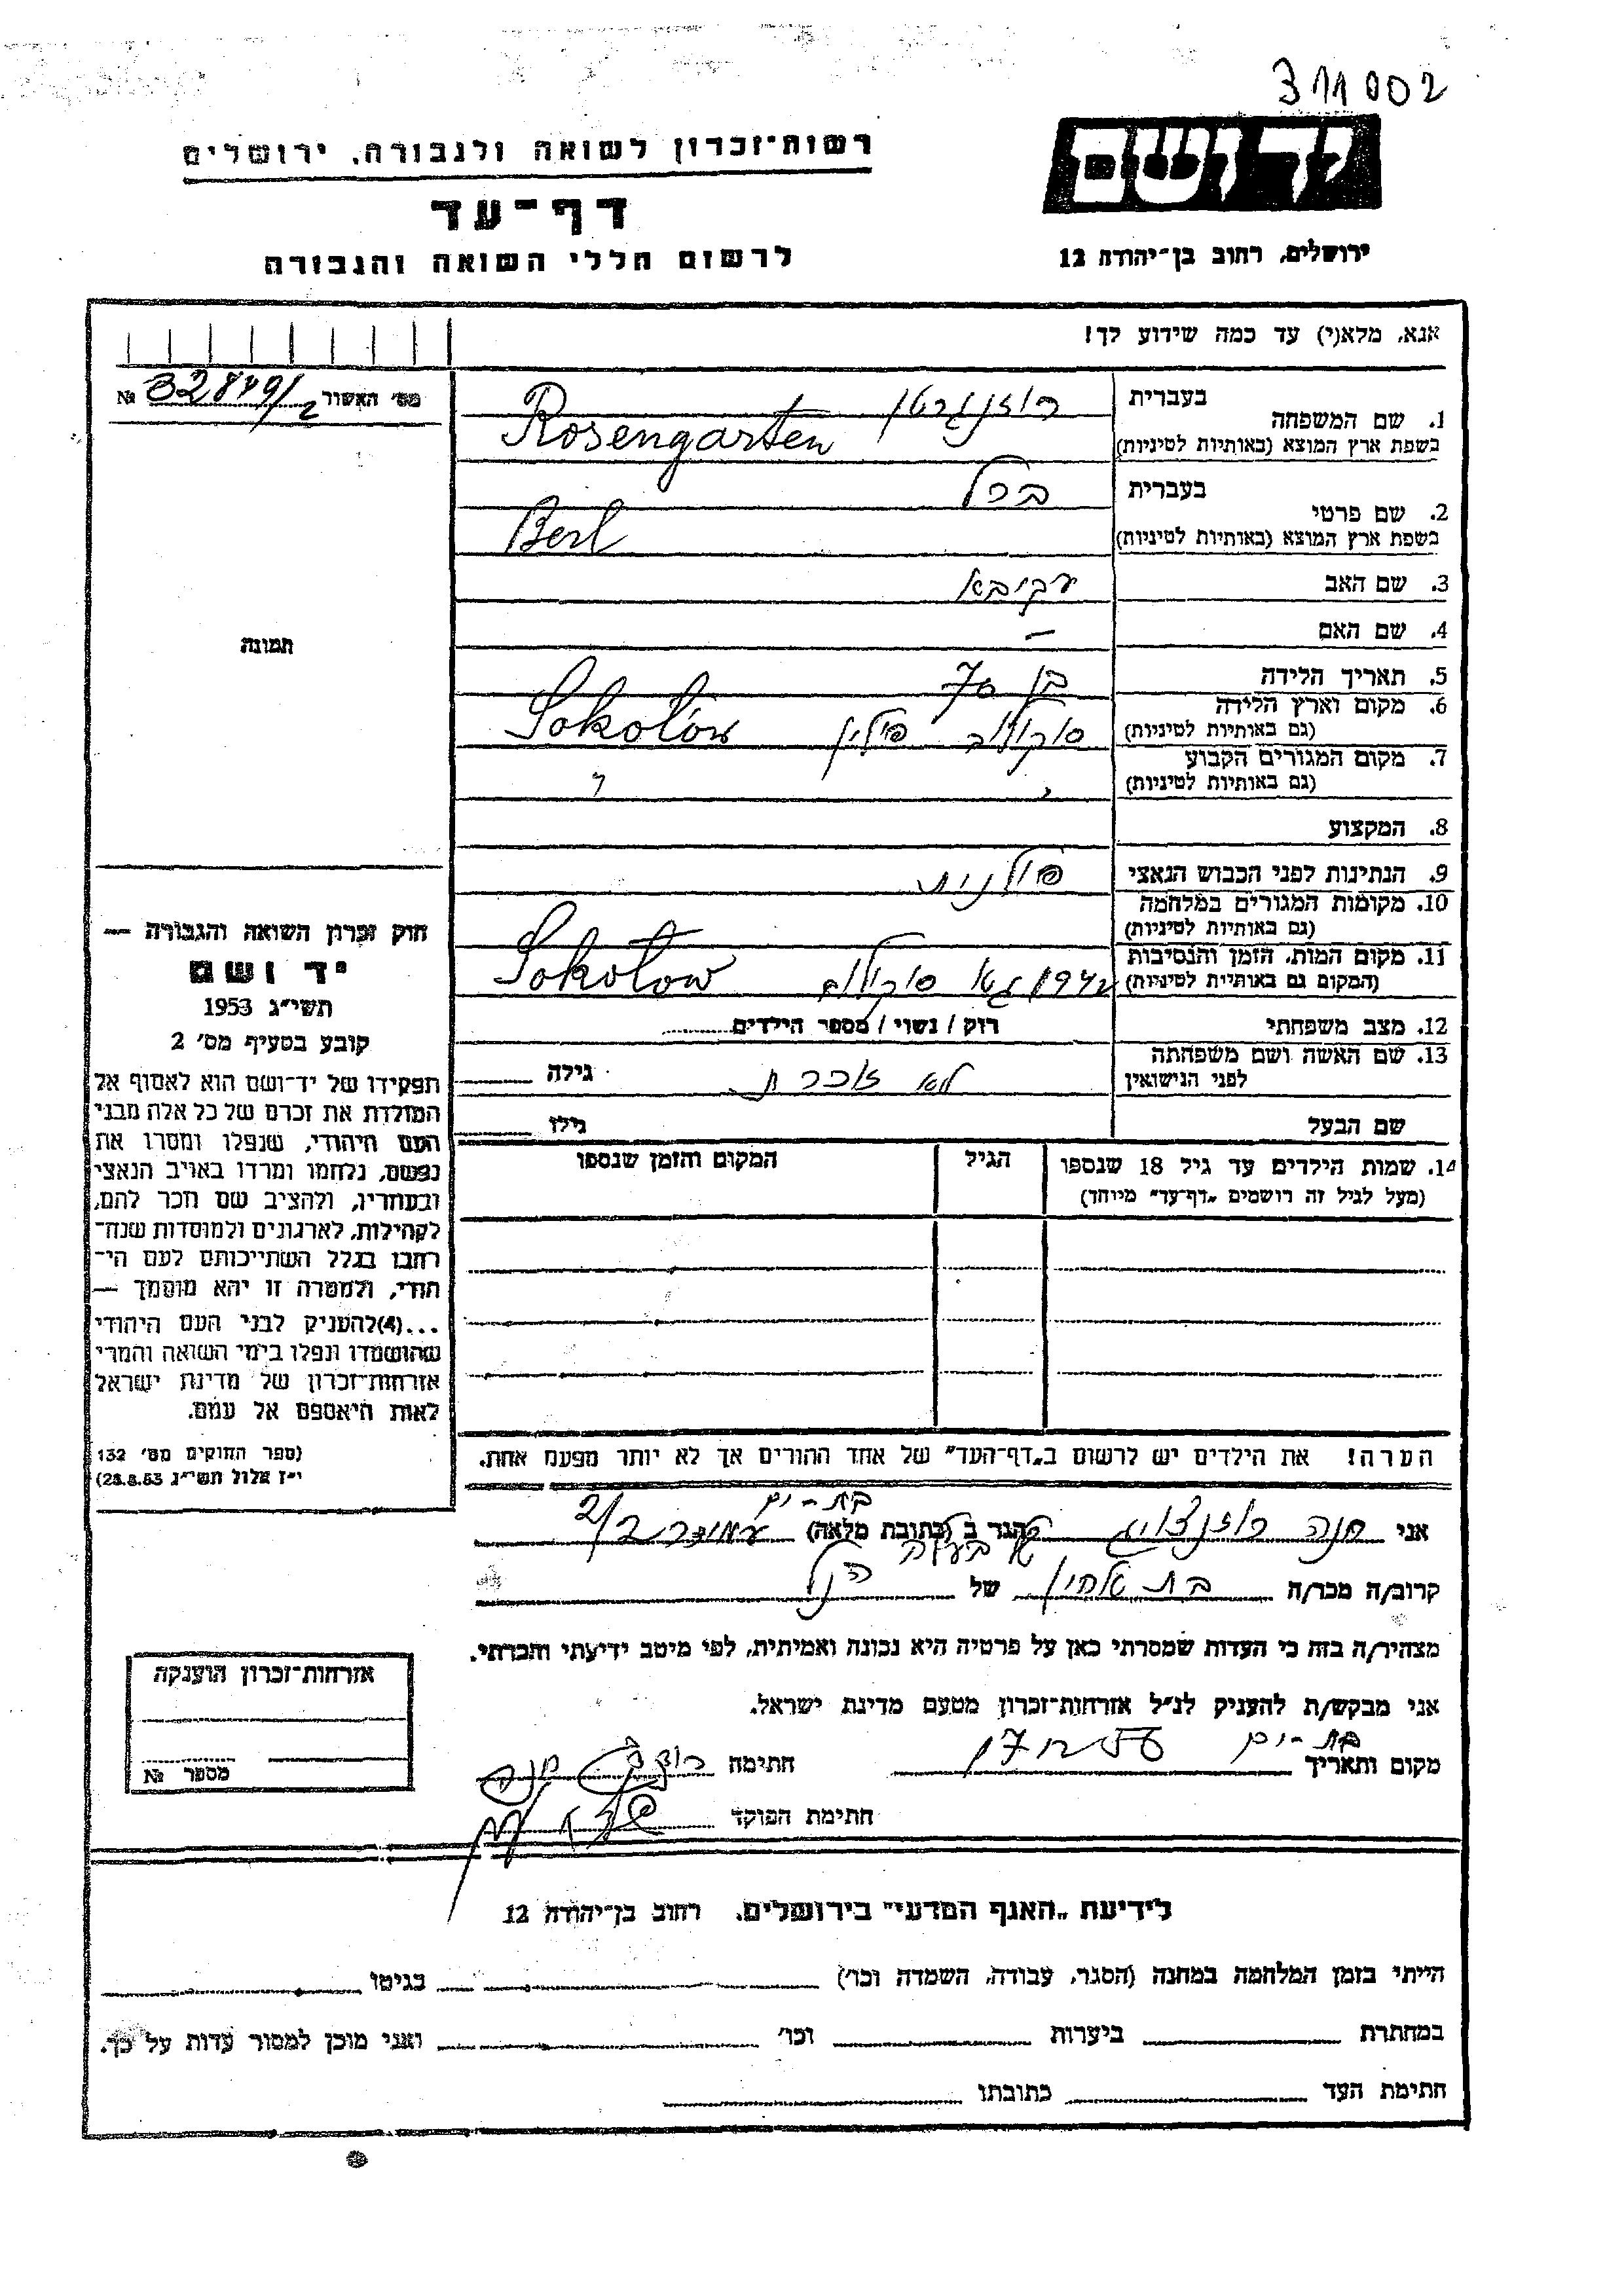 311002
יד ושם
ירושלים, רחוב בן־יהודה 12
רשות־זכרון לשואה ולגבורה, ירושלים
דף־עד
לרשום חללי השואה והגבורה
אנא, מלא(י) עד כמה שידוע לך!
מס׳ האשור № 32849/2
בעברית רוזנגרטן
1. שם המשפחה
בשפת ארץ המוצא (באותיות לטיניות) Rosengarten
בעברית ברל
2. שם פרטי
בשפת ארץ המוצא (באותיות לטיניות) Berl
3. שם האב עקיבא
4. שם האם —
5. תאריך הלידה בן 70
6. מקום וארץ הלידה
(גם באותיות לטיניות) סוקולוב פולין Sokołów
7. מקום המגורים הקבוע
(גם באותיות לטיניות)
8. המקצוע
9. הנתינות לפני הכבוש הנאצי פולנית
10. מקומות המגורים במלחמה
(גם באותיות לטיניות)
11. מקום המות, הזמן והנסיבות
(המקום גם באותיות לטיניות) 1942 סוקולוב Sokołow
12. מצב משפחתי רווק / נשוי / מספר הילדים
13. שם האשה ושם משפחתה
לפני הנישואין לא זוכרת גילה
שם הבעל גילו
14. שמות הילדים עד גיל 18 שנספו הגיל המקום והזמן שנספו
(מעל לגיל זה רושמים „דף־עד״ מיוחד)
הערה! את הילדים יש לרשום ב„דף־העד״ של אחד ההורים אך לא יותר מפעם אחת.
תמונה
חוק זכרון השואה והגבורה —
יד ושם
תשי״ג 1953
קובע בסעיף מס׳ 2
תפקידו של יד־ושם הוא לאסוף אל
המולדת את זכרם של כל אלה מבני
העם היהודי, שנפלו ומסרו את
נפשם, נלחמו ומרדו באויב הנאצי
ובעוזריו, ולהציב שם וזכר להם,
לקהילות, לארגונים ולמוסדות שנח־
רחבו בגלל השתייכותם לעם הי־
הודי, ולמטרה זו יהא מוסמך —
...(4)להעניק לבני העם היהודי
שהושמדו ונפלו בימי השואה והמרי
אזרחות־זכרון של מדינת ישראל
לאות היאספם אל עמם.
(ספר החוקים מס׳ 132
י״ז אלול תשי״ג 28.8.53)
בת-ים
אני חנה רוזנצוייג הגר ב (כתובת מלאה) 2/2
של בעלה
קרוב/ה מכר/ה בת אחין של הנ״ל
מצהיר/ה בזה כי העדות שמסרתי כאן על פרטיה היא נכונה ואמיתית, לפי מיטב ידיעתי והכרתי.
אני מבקש/ת להעניק לנ״ל אזרחות־זכרון מטעם מדינת ישראל.
מקום ותאריך בת-ים חתימה
חתימת הפוקד
אזרחות־זכרון הוענקה
מספר №
לידיעת „האגף המדעי״ בירושלים, רחוב בן־יהודה 12
הייתי בזמן המלחמה במחנה (הסגר, עבודה, השמדה וכו׳) בגיטו
במחתרת ביערות וכו׳ ואני מוכן למסור עדות על כך.
חתימת העד כתובתו